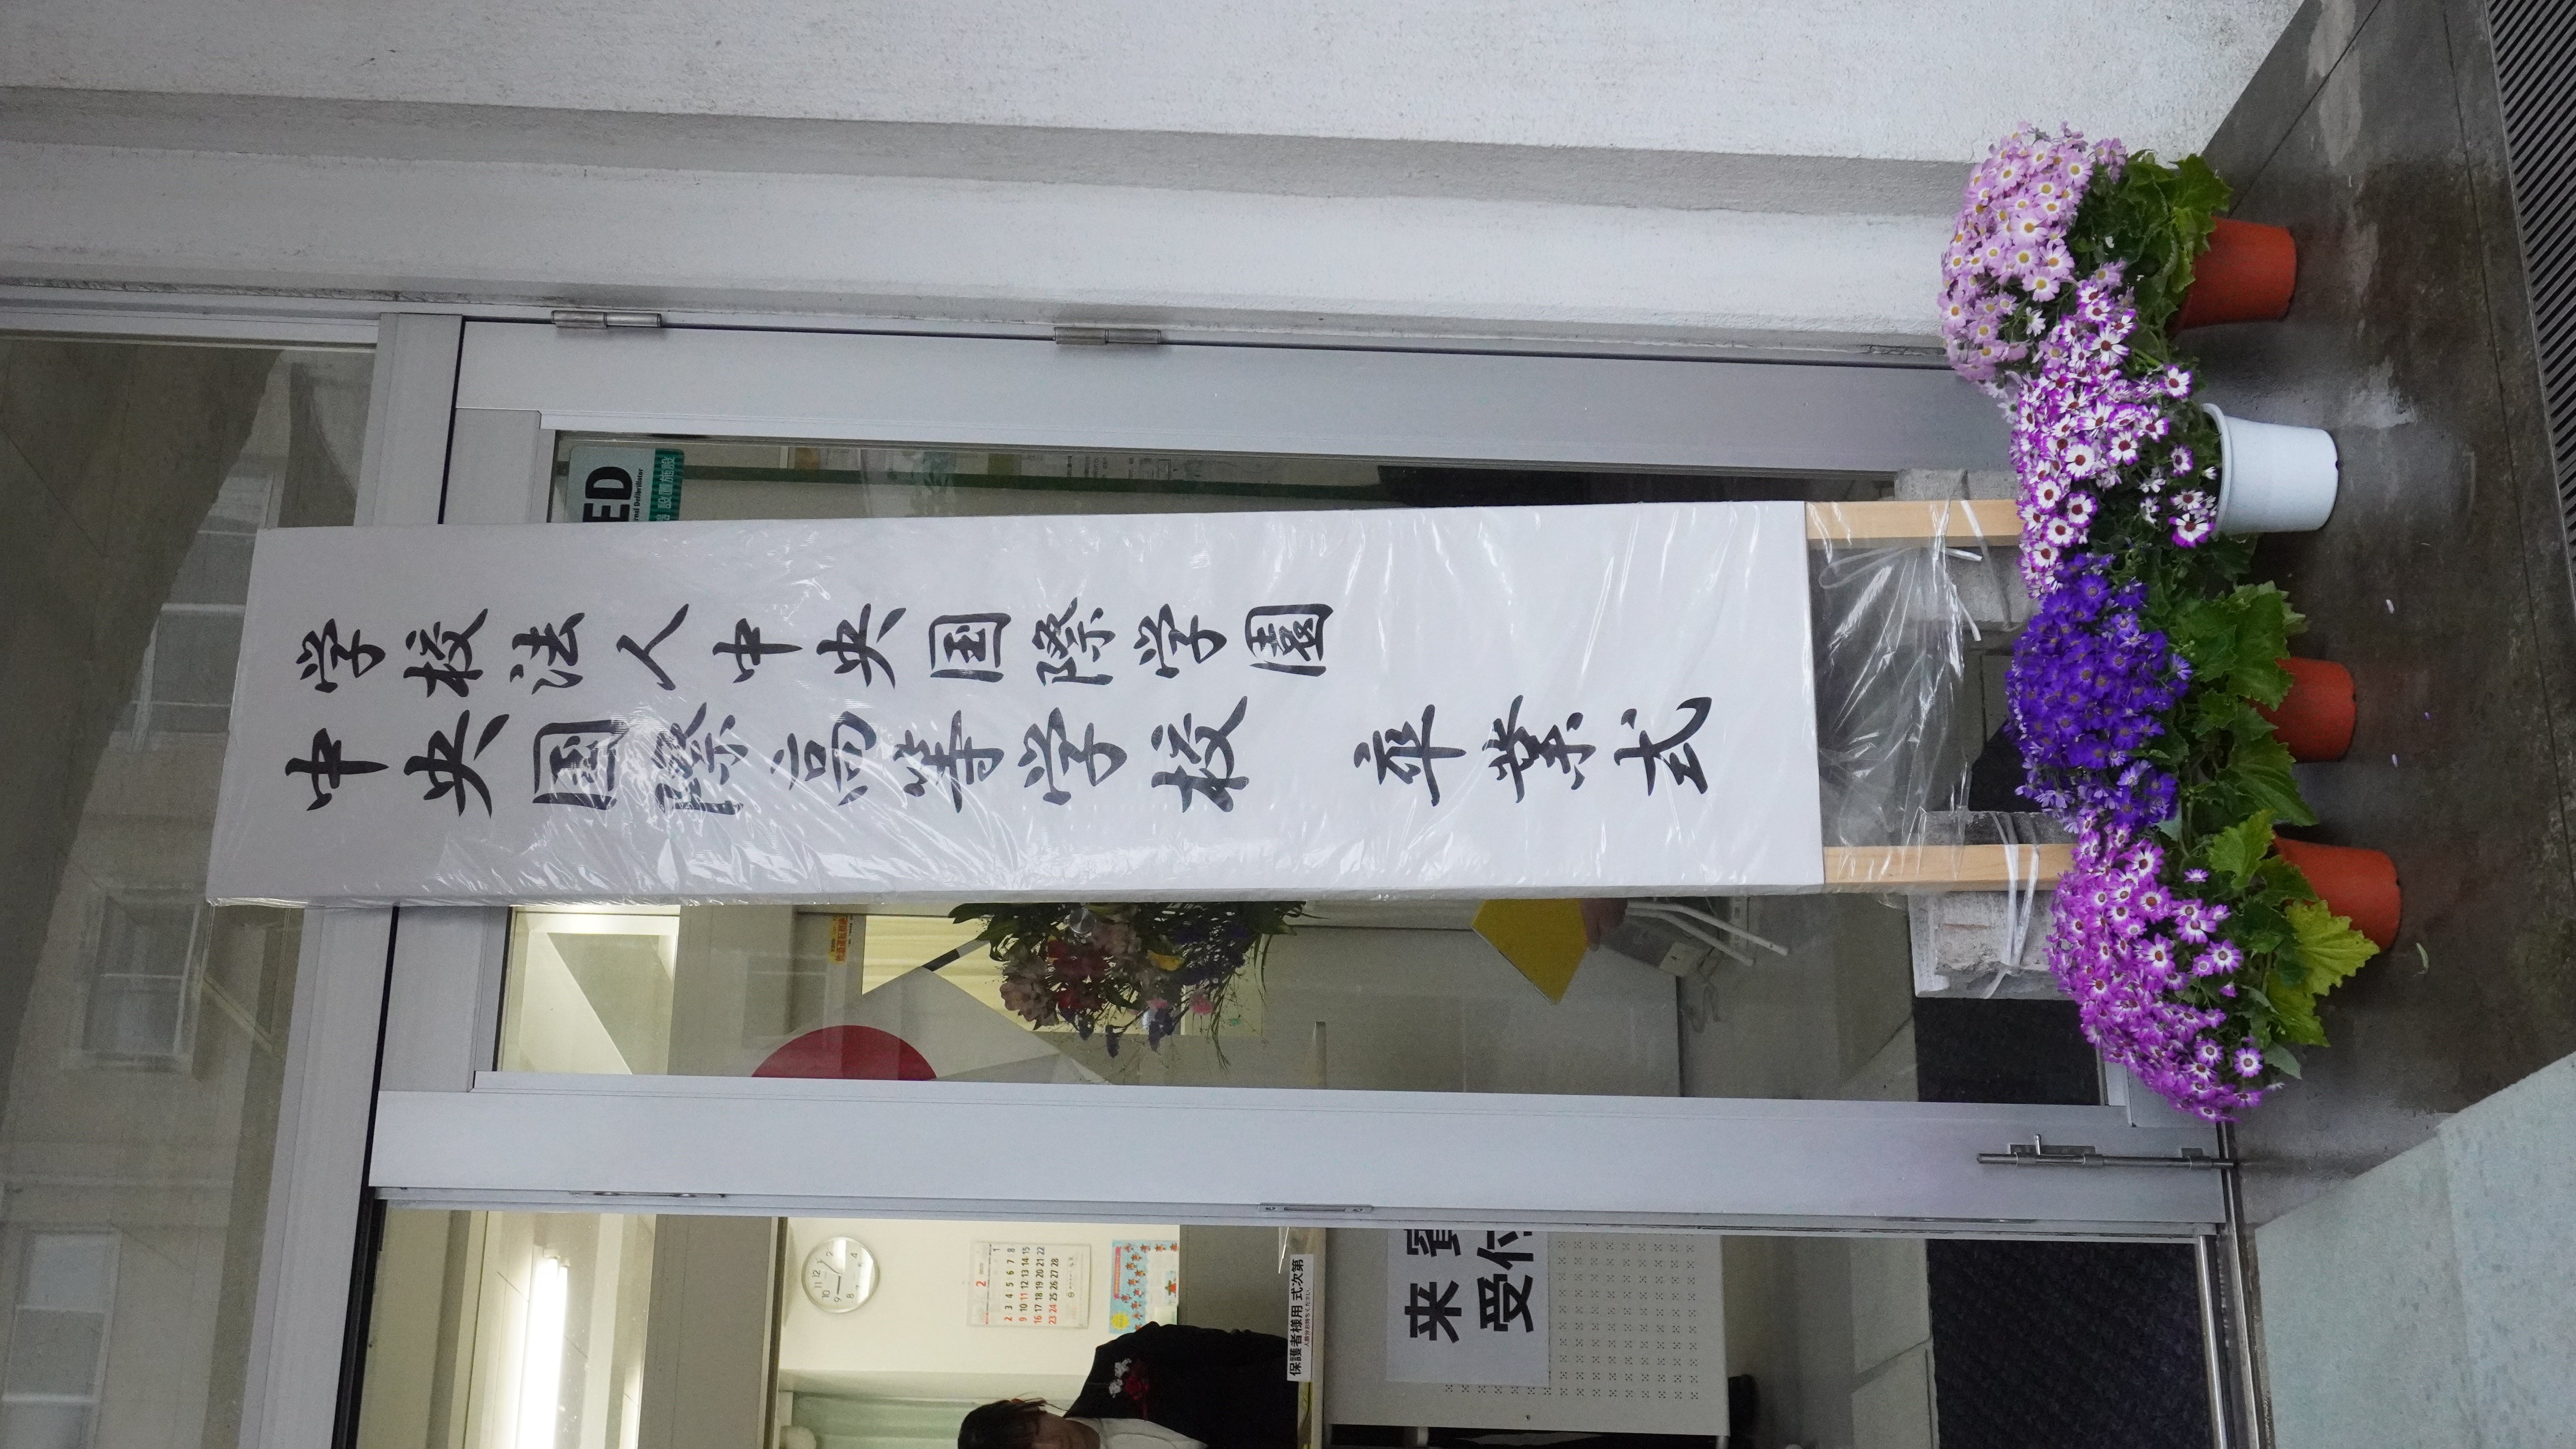 学校法人中央国際学園
中央国際高等学校 卒業式
ED
設置施設
来賓
受付
保護者様用 式次第
2
1
2 3 4 5 6 7 8
9 10 11 12 13 14 15
16 17 18 19 20 21 22
23 24 25 26 27 28